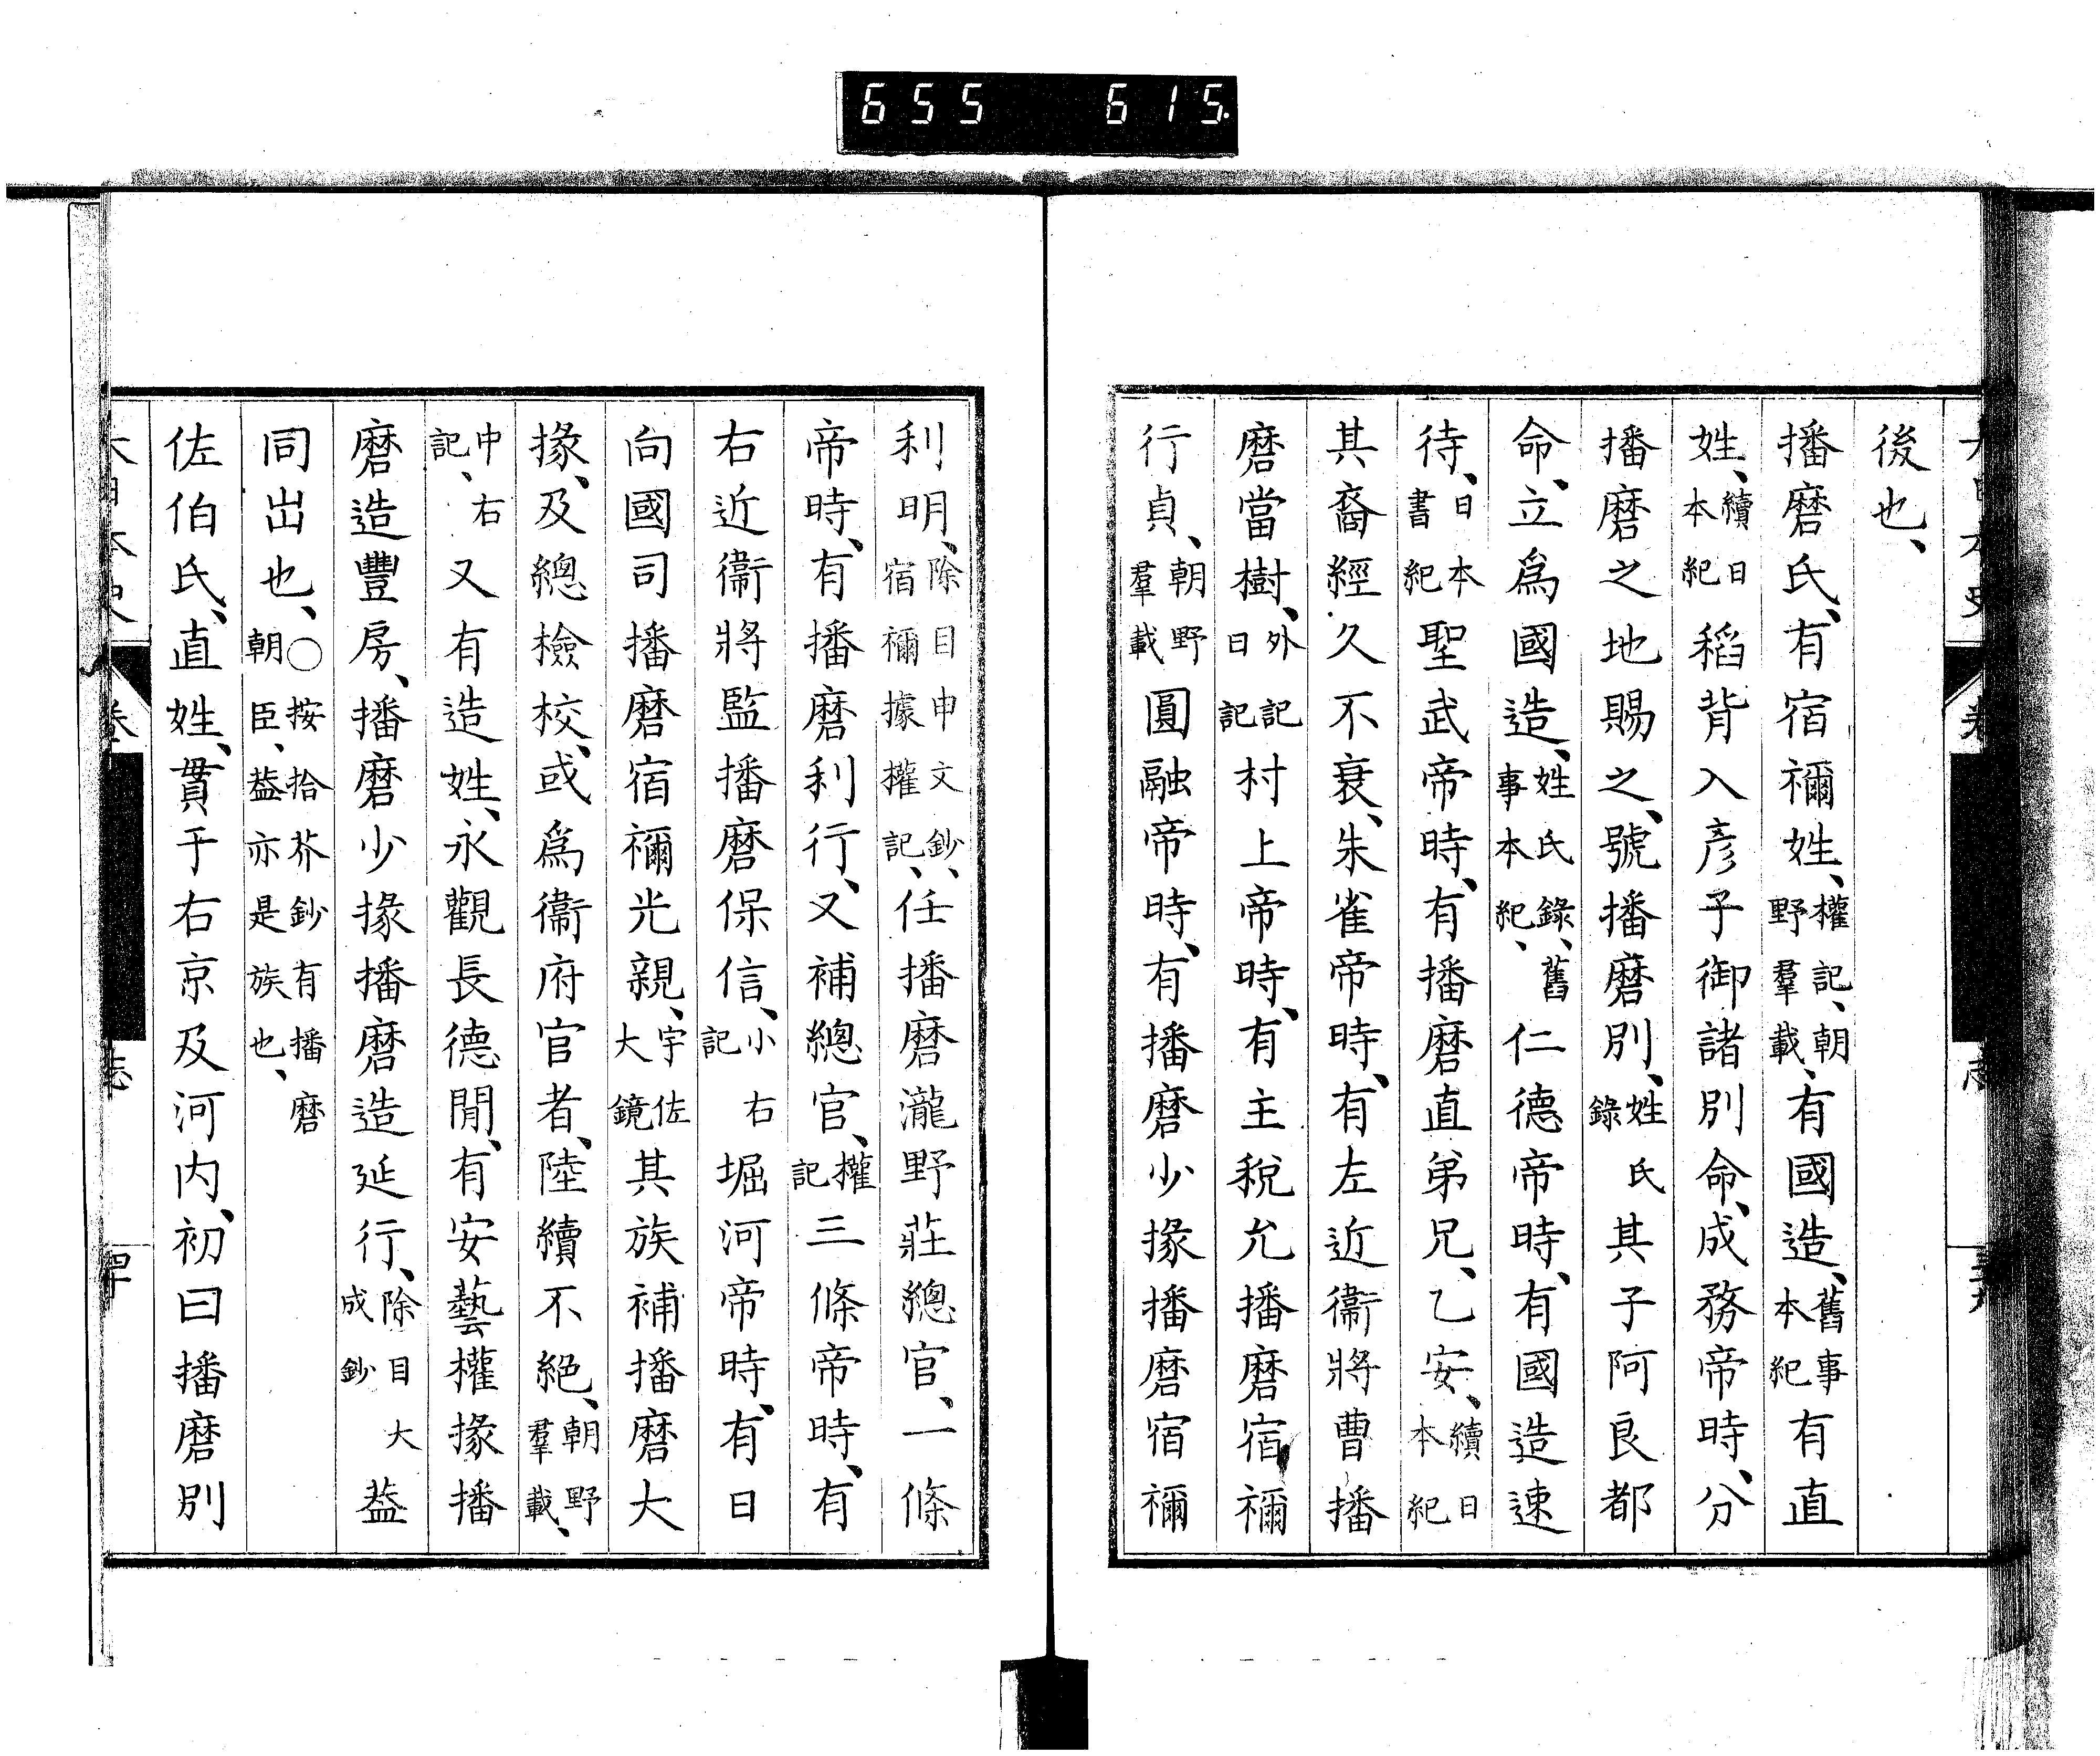 655 615
後也、
播磨氏、有宿禰姓、權記、朝野羣載、有國造、舊事本紀有直
姓、續日本紀稻背入彥子御諸別命、成務帝時、分
播磨之地賜之、號播磨別、姓氏錄其子阿良都
命、立爲國造、姓氏錄、舊事本紀、仁德帝時、有國造速
待、日本書紀聖武帝時、有播磨直弟兄、乙安、續日本紀
其裔經久不衰、朱雀帝時、有左近衞將曹播
磨當樹、外記日記村上帝時、有主稅允播磨宿禰
行貞、朝野羣載圓融帝時、有播磨少掾播磨宿禰
利明、除目申文鈔、宿禰據權記、任播磨瀧野莊總官、一條
帝時、有播磨利行、又補總官、權記三條帝時、有
右近衞將監播磨保信、小右記堀河帝時、有日
向國司播磨宿禰光親、宇佐大鏡其族補播磨大
掾、及總檢校、或爲衞府官者、陸續不絕、朝野羣載、
中右記、又有造姓、永觀長德閒、有安藝權掾播
磨造豐房、播磨少掾播磨造延行、除目大成鈔葢
同出也、○按拾芥鈔有播磨朝臣、葢亦是族也、
佐伯氏、直姓、貫于右京及河内、初曰播磨別